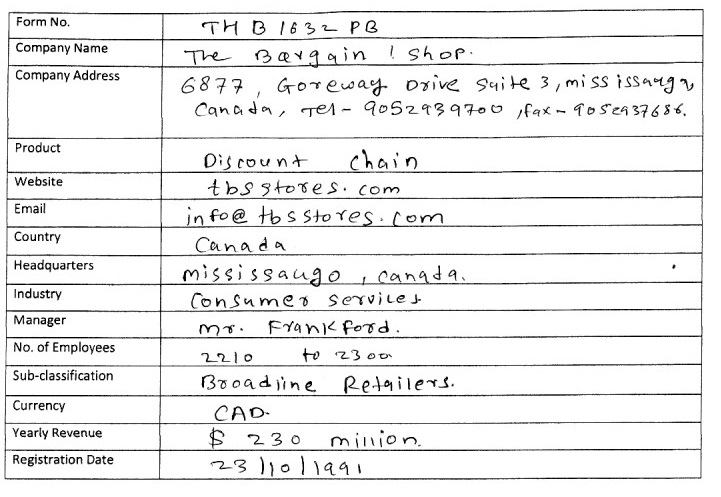 Form No. THB1632PB
Company Name The Bargain ! Shop.
Company Address 6877, Goreway Drive Suite 3, mississauga,
Canada, Tel - 9052939700, fax - 9052937686.
Product Discount chain
Website tbsstores.com
Email info@tbsstores.com
Country Canada
Headquarters mississaugo, canada.
Industry Consumer services
Manager mr. Frankford.
No. of Employees 2210 to 2300
Sub-classification Broadline Retailers.
Currency CAD.
Yearly Revenue $ 230 million.
Registration Date 23/10/1991